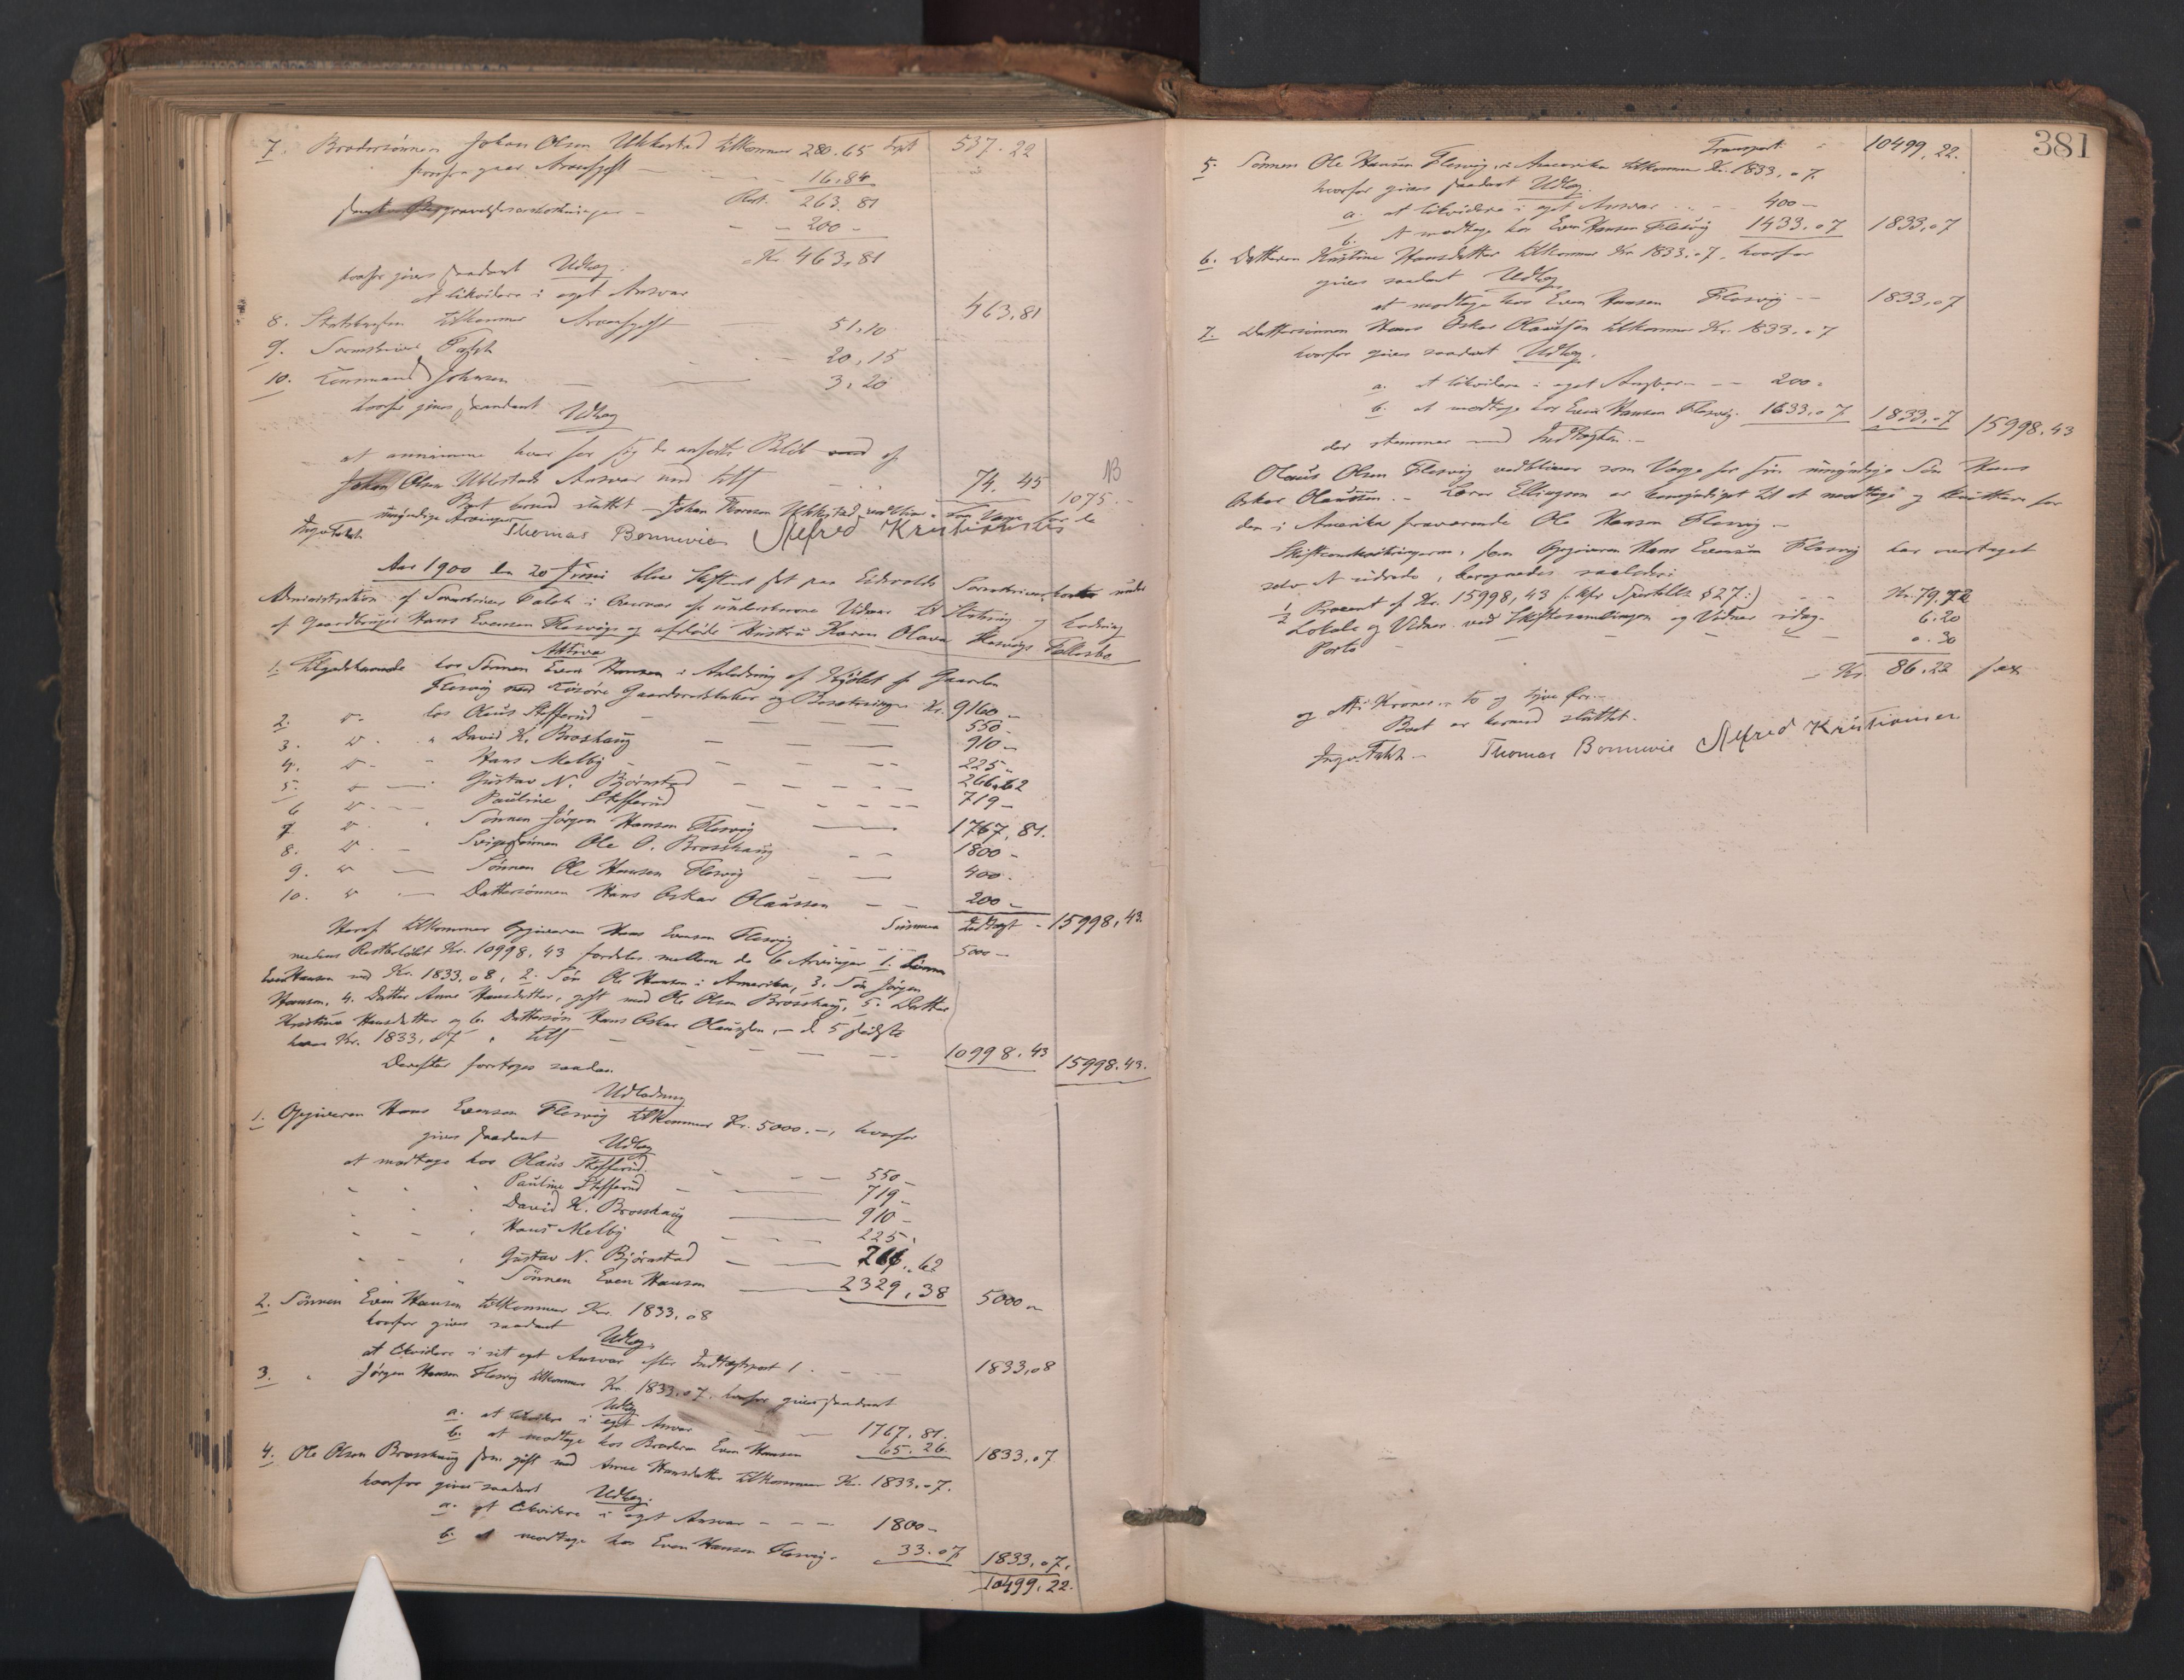 7. Brodersønnen Johan Olsen Ukkestad tilkommer 280.65 Tspt 537.22
hvorfra gaar Arveafgift — 16,84
Rest. 263.81
200 -
Kr. 463,81
hvorfor gives saadant Udlæg:
at likvidere i eget Ansvar 463,81
8. Statskassen tilkommer Arveafgift 51,10
9. Sorenskriver Falch 20,15
10. Lensmand Johnsen 3,20
hvorfor gives saadant Udlæg
at annamme hver for sig de anførte Beløb af
Johan Olsen Ukkestads Ansvar med tils. 74.45 1075.-
Boet hermed sluttet — Johan Ukkestad vedbliver som Værge for de
umyndige Arvinger.
Ingv. Falch Thomas Bonnevie Alfred Kristiansen
Aar 1900 den 20 Juni blev Skifteret sat paa Eidsvolds Sorenskriverkontor under
Administration af Sorenskriver Falch i Overvær af underskrevne Vidner til Slutning og Lodning
af Gaardbruger Hans Evensen Flesvigs og afdøde Hustru Karen Olava Flesvigs Fællesbo
Aktiva
1. Tilgodehavende hos Sønnen Even Hansen i Anledning af Kjøbet af Gaarden
Flesvig med Løsøre Gaardsredskaber og Besætninger Kr. 9160 -
2. do. hos Olaus Stefferud — 550 -
3. do. " David K. Brosshaug — 910 -
4. do. " Hans Melby — 225 -
5. do. Gustav N. Bjørnstad — 266.62
6 do. Pauline Stefferud — 719 -
7. do. Sønnen Jørgen Hansen Flesvig — 1767,81.
8. do. Svigersønnen Ole O. Brosshaug — 1800 -
9. do. Sønnen Ole Hansen Flesvig — 400.
10. do. Dattersønnen Hans Oskar Olaussen — 200 -
Summa Indtægt - 15998,43.
Heraf tilkommer Opgiveren Hans Evensen Flesvig 5000 -
medens Restbeløbet Kr. 10998.43 fordeles mellem de 6 Arvinger 1. Sønnen
Even Hansen med Kr. 1833.08, 2. Søn Ole Hansen i Amerika, 3. Søn Jørgen
Hansen, 4. Datter Anne Hansdatter, gift med Ole Olsen Brosshaug, 5. Datter
Kristine Hansdatter og 6. Dattersøn Hans Oskar Olaussen, - de 5 sidste
hver Kr. 1833,07, tils — 10998.43 15998.43.
Derefter foretoges saadan
Udlodning
1. Opgiveren Hans Evensen Flesvig tilkommer Kr. 5000.-, hvorfor
gives saadant Udlæg
at modtage hos Olaus Stefferud. 550 -
" " " Pauline Stefferud — 719 -
" " " David K. Brosshaug — 910 -
" " " Hans Melby — 225.
" " " Gustav N. Bjørnstad — 266.62
" " " Sønnen Even Hansen — 2329,38 5000 -
2. Sønnen Even Hansen tilkommer Kr. 1833.08
hvorfor gives saadant Udlæg.
at likvidere i sit eget Ansvar efter Indtægtspost 1. 1833,08
3. " Jørgen Hansen Flesvig tilkommer Kr. 1833.07. hvorfor gives saadant
Udlæg
a. at likvidere i eget Ansvar 1767,81.
b. at modtage hos Broderen Even Hansen 65.26 1833.07
4. Ole Olsen Brosshaug som gift med Anne Hansdatter tilkommer Kr. 1833.07.
hvorfor gives saadant Udlæg.
a. at likvidere i eget Ansvar - - 1800 -
b. at modtage hos Even Hansen Flesvig. 33.07 1833.07.
10499.22.
381
Transport. 10499,22.
5. Sønnen Ole Hansen Flesvig i Amerika tilkommer Kr. 1833.07.
hvorfor gives saadant Udlæg.
a. at likvidere i eget Ansvar 400 -
b. at modtage hos Even Hansen Flesvig 1433.07 1833,07
6. Datteren Kristine Hansdatter tilkommer Kr. 1833.07. hvorfor
gives saadant Udlæg
at modtage hos Even Hansen Flesvig -- 1833,07
7. Dattersønnen Hans Oskar Olaussen tilkommer Kr. 1833.07
hvorfor gives saadant Udlæg.
a. at likvidere i eget Ansvar - - 200.
b. at modtage hos Even Hansen Flesvig. 1633.07 1833.07 15998.43
der stemmer med Indtægten.-
Olaus Olsen Flesvig vedbliver som Værge for sin umyndige Søn Hans
Oskar Olaussen. - Ellingsen er bemyndiget til at modtage og kvittere for
den i Amerika fraværende Ole Hansen Flesvig -
Skifteomkostningerne, som Opgiveren Hans Evensen Flesvig har overtaget
selv at udrede, beregnedes saaledes:
1/2 Procent af Kr. 15998,43 (: kfr Sportell. § 27:) Kr. 79.72
Lokale og Vidner ved Skiftesamlingen og Vidner idag. 6.20
Porto 0.30
Kr. 86.22
og otti Kroner to og tyve Øre.-
Boet er hermed sluttet.
Ingv. Falch — Thomas Bonnevie Alfred Kristiansen